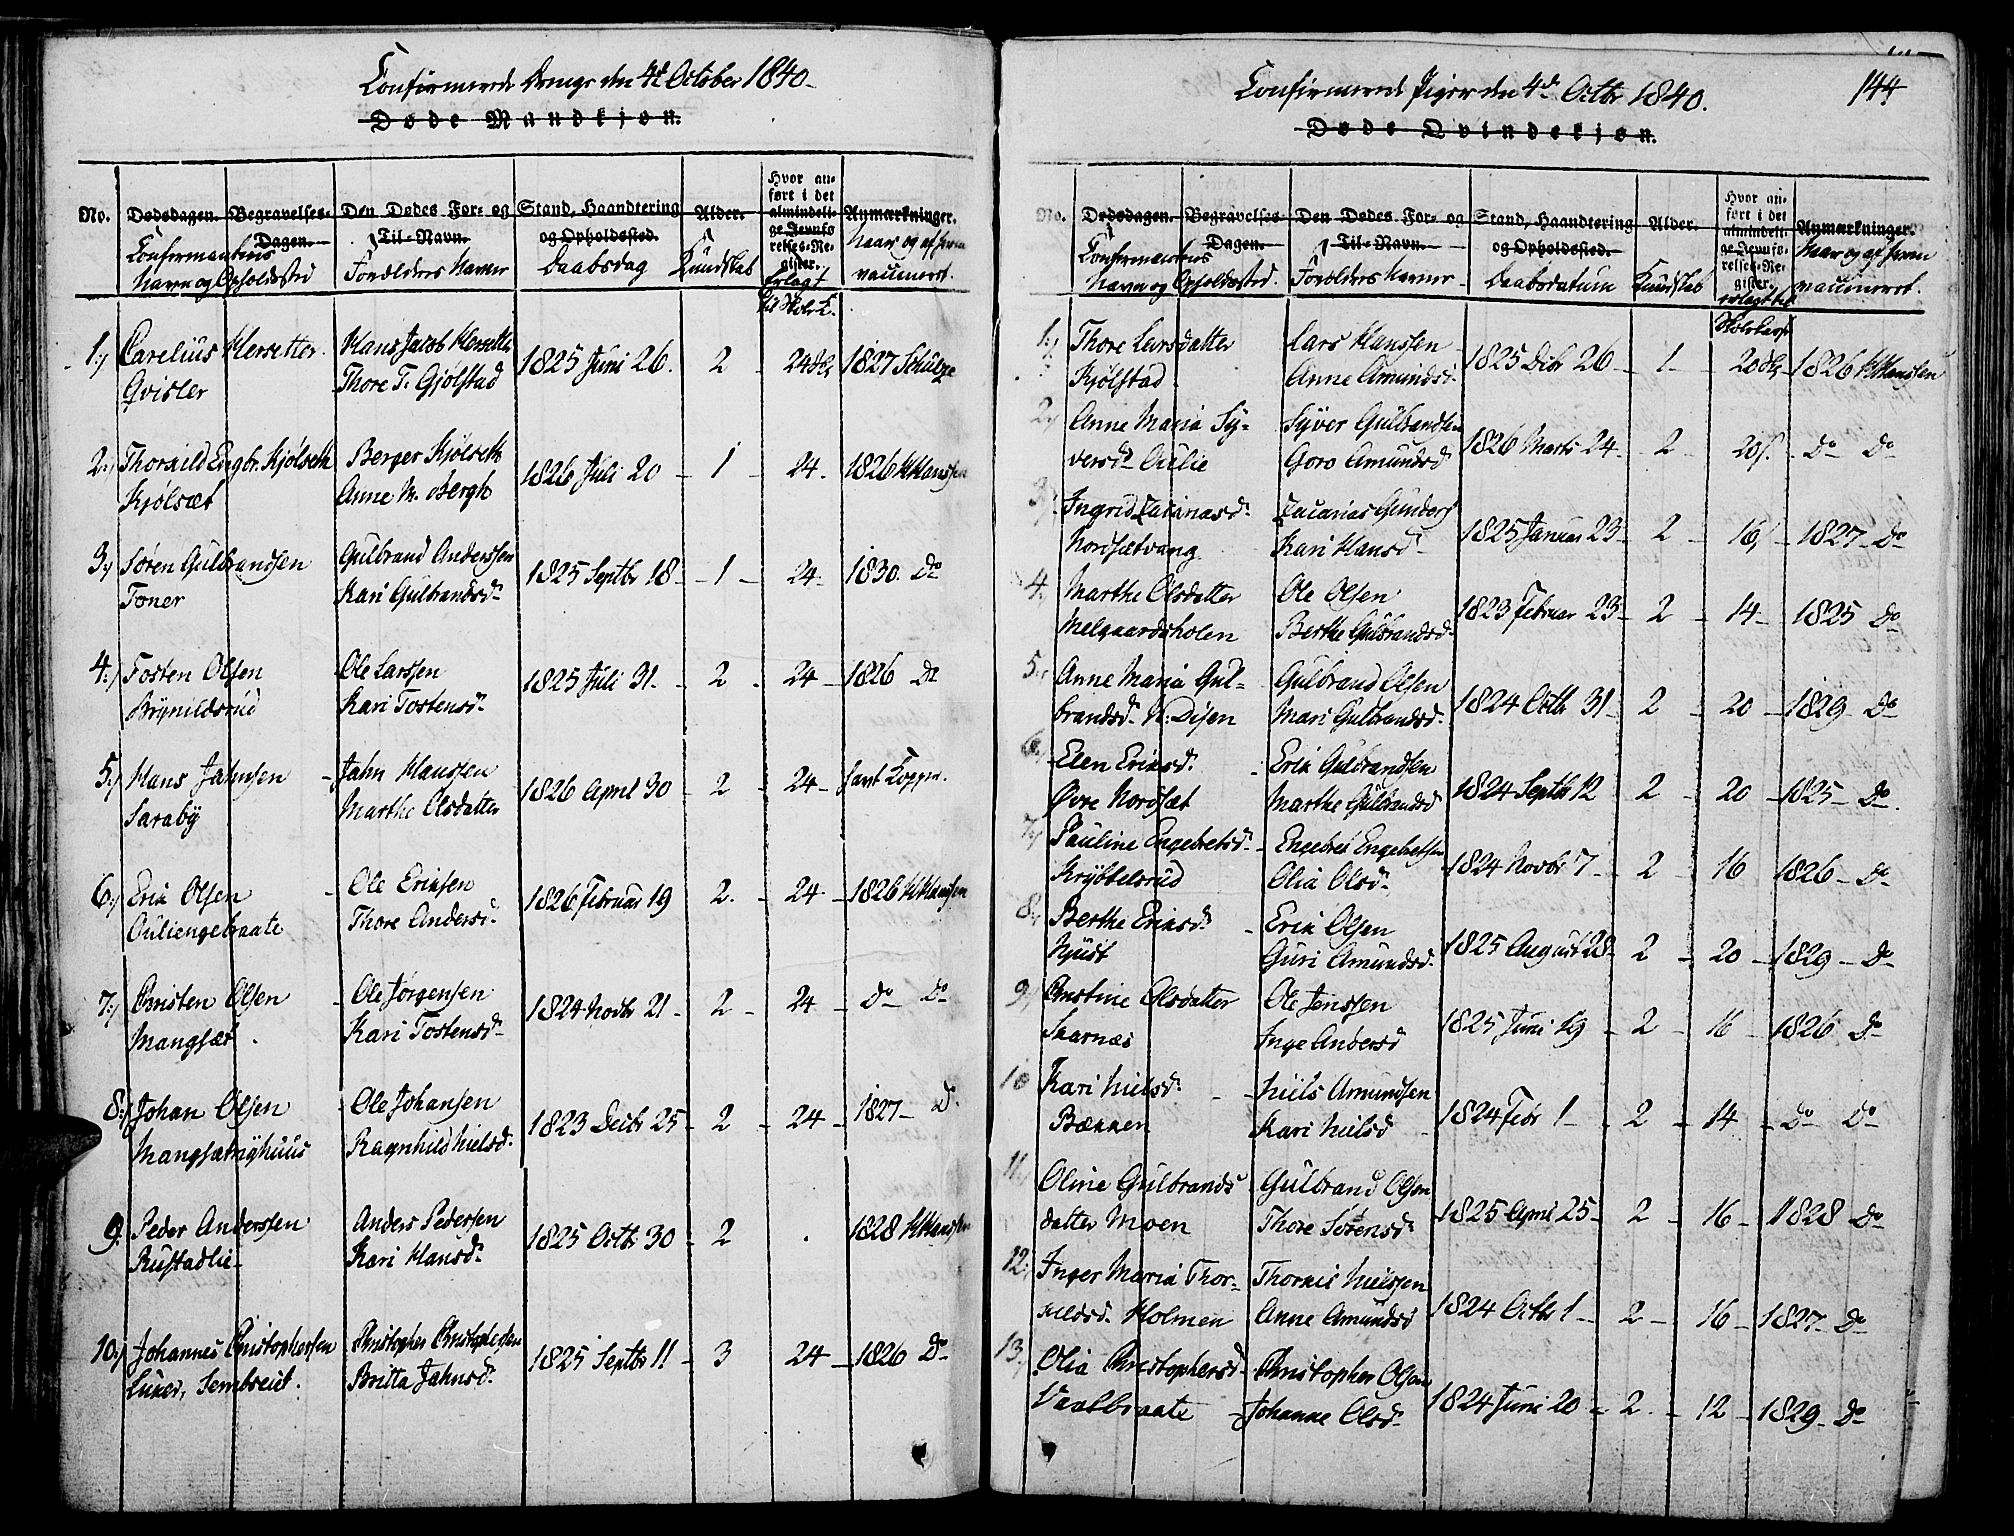 Confirmerede Drenge den 4de October 1840.
Døde Mandkjøn.
No. Dødsdagen. Begravelses-Dagen. Den Dødes For- og Til-Navn. Stand, Haandtering og Opholdssted. Alder. Hvor anført i det almindelige Jevnførelses-Register. Anmærkninger.
Confirmantens Navn og Opholdssted Forældres Navne Daabsdag Kundskab Erlagt til Skole K. Naar og af hvem vaccineret.
1.) Carelius Hersetter Hans Jacob Hersetter 1825 Juni 26. 2 24 1827 Schulze
Qvisler Thore T. Gjølstad
2.) Thorvild Engbr. Kjølseth Berger Kjølseth 1826 Juli 20 - 1 - 24. 1826 H Hanssen
Kjølsæt Anne M. Bergh
3.) Søren Gulbrandsen Gulbrand Anderssen 1825 Septbr 18 - 1 - 24 - 1830. Do
Toner Kari Gulbrandsd.
4.) Tosten Olsen Ole Larssen 1825 Juli 31. - 2 - 24 - 1826 Do
Brynildsrud Kari Tostensd.
5.) Hans Jahnsen - Jahn Hanssen 1826 April 30 - 2 - 24 - havt Kopper.
Saraby Marthe Olsdatter
6.) Erik Olsen - Ole Eriksen 1826 Februar 19 2. - 24 - 1826 H Hanssen
Ouliengebraate Thore Andersd.
7.) Christen Olsen - Ole Jørgensen 1824 Novbr 21 - 2 - 24 - Do Do
Mangset. Kari Tostensd.
8.) Johan Olsen - Ole Johansen 1823 Decbr 25 - 2 - 24 - 1827 - Do
Ragnhild Nielsd.
9. Peder Anderssen Anders Pedersen 1825 Octbr 30 - 2 . 1828 H Hanssen
Rustadlie - Kari Hansd.
10.) Johannes Christophersen Christopher Christophersen 1825 Septbr 11 - 3 24 - 1826 Do
Britta Jahnsd.
Confirmerede Piger den 4de Octbr 1840.
144
Døde Qvindekjøn.
No. Dødsdagen. Begravelses-Dagen. Den Dødes For- og Til-Navn. Stand, Haandtering og Opholdssted. Alder. Hvor anført i det almindelige Jevnførelses-Register. Anmærkninger.
Confirmantens Navn og Opholdssted. Forældres Navne Daabsdatum Kundskab erlagt til Skolekasse Naar og af hvem vaccineret.
1.) Thore Larsdatter Lars Hanssen 1825 Decbr 26 - 1 - 20 1826 H Hanssen
Kjølstad Anne Amundsd.
2.) Anne Maria Sy- Syver Gulbrandsen 1826 Marts 24 - 2 20 Do Do
versd. Oulie Goro Amundsd
3.) Ingrid Zacariasd. Zacarias Gunders 1825 Januar 23 - 2 16 1827 - Do
Nordsætvang Kari Hansd.
4. Marthe Olsdatter Ole Olsen 1823 Februar 23 - 2 - 14 - 1825 Do
Melgaardsholen Berthe Gulbrandsd.
5. Anne Maria Gul- Gulbrand Olsen 1824 Octbr 31 - 2 - 20 - 1829 - Do
brandsd. N. Disen Mari Gulbrandsd.
6. Elen Eriksd. - Erik Gulbrandsen 1824 Septbr 12 2 - 20 - 1825 - Do
Øvre Nordsæt Marthe Gulbrandsd
7.) Pauline Engebretsd. - Engebret Engebretsen 1824 Novbr 7 - 2 - 16 1826 - Do
Krybbelsrud Olia Olsd.
8.) Berthe Eriksd. - Erik Olsen 1825 August 28 - 2 - 20 - 1829 - Do
Guri Amundsd.
9.) Christine Olsdatter Ole Jenssen 1825 Juni 19 - 2 - 16 - 1826 - Do
Skarnæs Inge Andersd
10 Kari Nielsd. - Niels Amundsen 1824 Febr 1 - 2 - 14 - Do Do
Bækken Kari Nielsd
11. Oline Gulbrands Gulbrand Olsen 1825 April 25 - 2 - 16 - 1828 - Do
datter Moen Thore Sørensd
12. Inger Maria Thor- Nielssen 1824 Octbr 1 - 2 - 16 - 1827 - Do
kildsd. Holmen Anne Amundsd
13. Olia Christophersd. Christopher Olsen 1824 Juni 20 - 2 - 12 - 1829 - Do
Vaalbraate - Johanne Olsd.